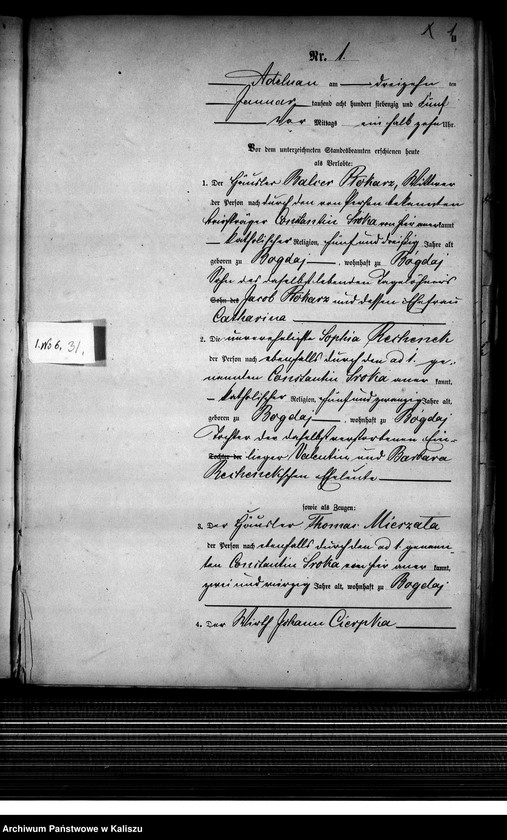 Nr. 1.
Adelnau am dreizehn ten
Januar tausend acht hundert siebenzig und fünf
Vor Mittags ein halb zehn Uhr.
Vor dem unterzeichneten Standesbeamten erschienen heute
als Verlobte:
1. Der Häusler Balcer Tokarz, Wittwer
der Person nach durch den von Person bekannten
Constantin Sroka von hier anerkannt
katholischer Religion, fünf und dreißig Jahre alt
geboren zu Bogdaj, wohnhaft zu Bogdaj
Sohn des daselbst lebenden Tagelöhners
Sohn des Jacob Tokarz und dessen Ehefrau
Catharina
2. Die unverehelichte Sophia
der Person nach ebenfalls durch den ad 1. ge-
nannten Constantin Sroka aner kannt,
katholischer Religion, fünf und zwanzig Jahre alt,
geboren zu Bogdaj, wohnhaft zu Bogdaj
Tochter der daselbst verstorbenen Ein-
Tochter der lieger Valentin und Barbara
Eheleute
sowie als Zeugen:
3. Der Häusler Thomas Mierzata
der Person nach ebenfalls durch den ad 1. genann-
ten Constantin Sroka von hier aner kannt,
zwei und vierzig Jahre alt, wohnhaft zu Bogdaj
4. Der Wirth Johann Cierpka
1.Wo 6. 31.
Archiwum Państwowe w Kaliszu